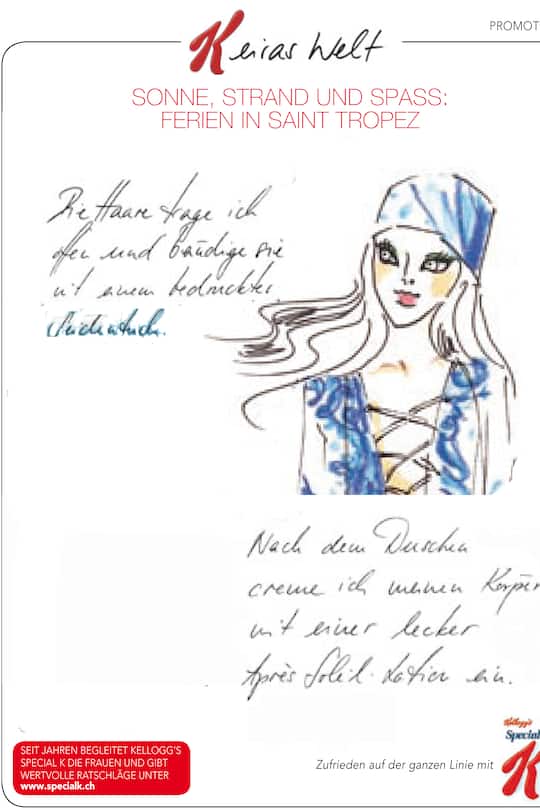 PROMOT
Keiras Welt
SONNE, STRAND UND SPASS:
FERIEN IN SAINT TROPEZ
Die Haare trage ich
offen und bändige sie
mit einem bedruckten
Seidentuch.
Nach dem Duschen
creme ich meinen Körper
mit einer lecker
Après Soleil-Lotion ein.
SEIT JAHREN BEGLEITET KELLOGG'S
SPECIAL K DIE FRAUEN UND GIBT
WERTVOLLE RATSCHLÄGE UNTER
www.specialk.ch
Zufrieden auf der ganzen Linie mit
Kellogg's
Special
K